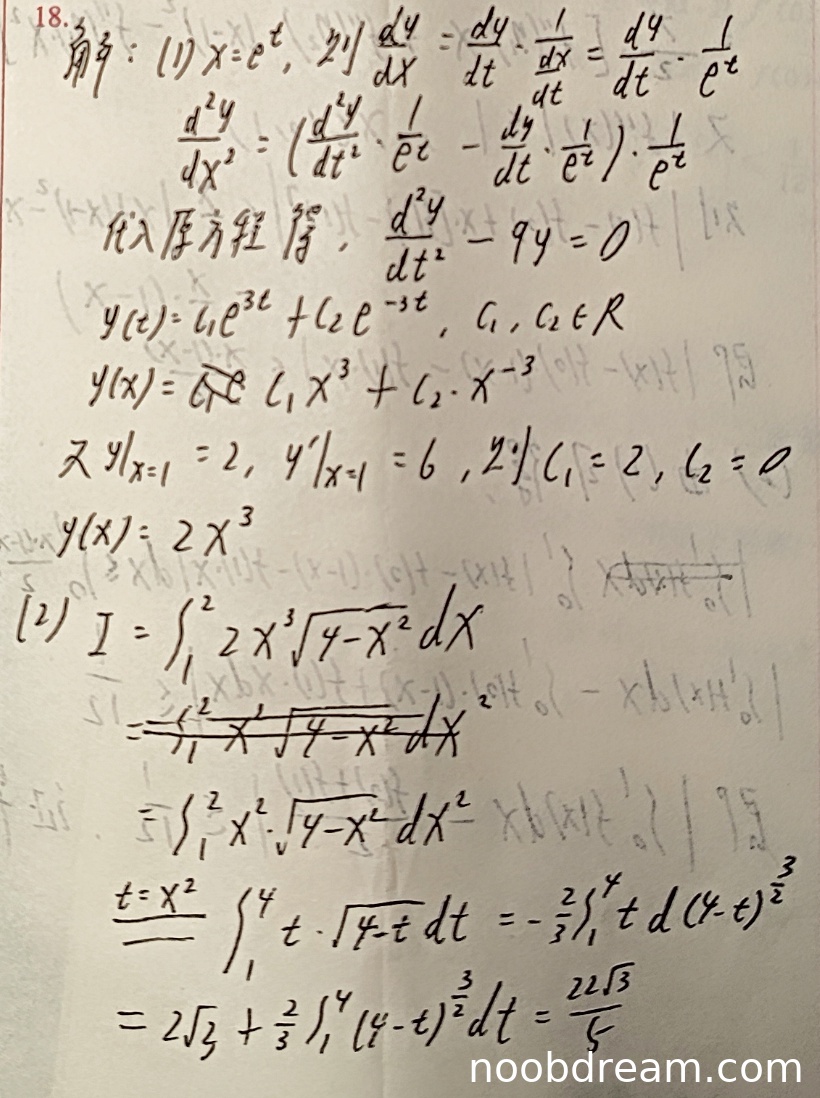 18.
解：(1) x=e^t, 则 dy/dx = dy/dt · 1/(dx/dt) = dy/dt · 1/e^t
d²y/dx² = (d²y/dt² · 1/e^t - dy/dt · 1/e^t) · 1/e^t
代入原方程得, d²y/dt² - 9y = 0
y(t) = C₁e^{3t} + C₂e^{-3t}, C₁, C₂ ∈ R
y(x) = C₁x³ + C₂·x^{-3}
又 y|_{x=1} = 2, y'|_{x=1} = 6, 则 C₁ = 2, C₂ = 0
y(x) = 2x³
(2) I = ∫₁² 2x³√(4-x²) dx
= ∫₁² x² √(4-x²) dx²
= ∫₁² x²·√(4-x²) dx²
t=x² ∫₁⁴ t·√(4-t) dt = -2/3 ∫₁⁴ t d(4-t)^{3/2}
= 2√3 + 2/3 ∫₁⁴ (4-t)^{3/2} dt = 22√3/5
noobdream.com